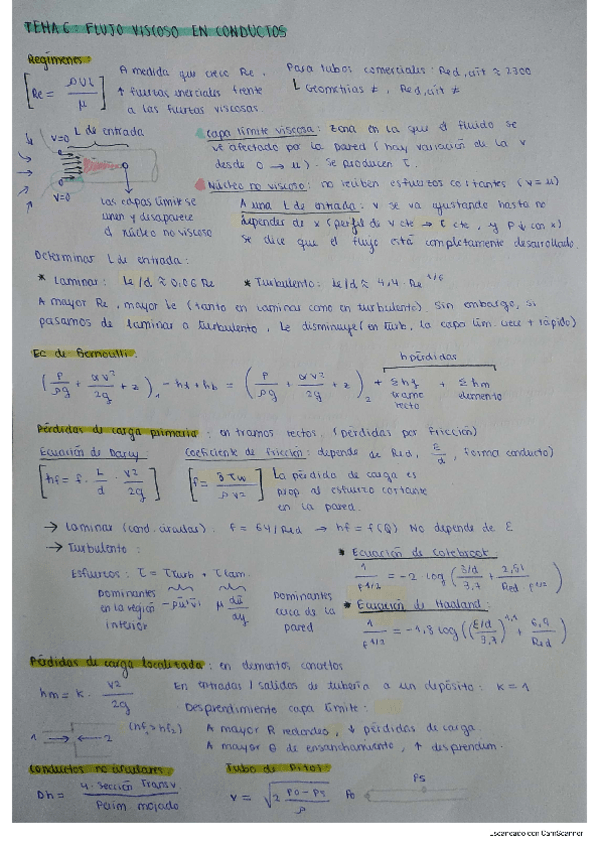 TEMA 6: FLUJO VISCOSO EN CONDUCTOS
Regímenes:
[Re = ρVL / μ]
A medida que crece Re,
↑ fuerzas inerciales frente
a las fuerzas viscosas.
Para tubos comerciales: Red,crit ≈ 2300
Geometrías ≠, Red,crit ≠
V=0
L de entrada
V=0
Las capas límite se
unen y desaparece
el núcleo no viscoso
Capa límite viscosa: zona en la que el fluido se
ve afectado por la pared (hay variación de la v
desde 0 → μ). Se producen τ.
Núcleo no viscoso: no reciben esfuerzos cortantes (v = μ)
A una L de entrada: v se va ajustando hasta no
depender de x (perfil de v cte → τ cte, y P ↓ con x)
Se dice que el flujo está completamente desarrollado.
Determinar L de entrada:
* Laminar: Le/d ≈ 0,06 Re
* Turbulento: Le/d ≈ 4,4 · Re^1/6
A mayor Re, mayor Le (tanto en laminar como en turbulento). Sin embargo, si
pasamos de laminar a turbulento, Le disminuye (en turb. la capa lím. crece + rápido)
Ec de Bernoulli:
h pérdidas
(P/ρg + αv²/2g + z)1 - hf + hb = (P/ρg + αv²/2g + z)2 + Σhf + Σhm
tramo recto
elemento
Pérdidas de carga primaria: en tramos rectos. (pérdidas por fricción)
Ecuación de Darcy:
[hf = f · L/d · v²/2g]
Coeficiente de fricción: depende de Red, ε/d, forma conducto)
[f = 8τw / ρv²]
La pérdida de carga es
prop al esfuerzo cortante
en la pared.
→ Laminar (cond. circulas). f = 64/Red → hf = f(Q) No depende de ε
→ Turbulento:
Esfuerzos: τ = τturb + τlam.
Dominantes
en la región
interior
-ρu'v'
μ dū/dy
Dominantes
cerca de la
pared
* Ecuación de Colebrook
1/f^1/2 = -2 log(ε/d / 3,7 + 2,51 / Red · f^1/2)
* Ecuación de Haaland:
1/f^1/2 = -1,8 log((ε/d / 3,7)^1,11 + 6,9 / Red)
Pérdidas de carga localizada: en elementos concretos
hm = K · v²/2g
En entradas/salidas de tubería a un depósito: K = 1
Desprendimiento capa límite:
1 → ← 2
(hf1 > hf2)
A mayor R redondeo, ↓ pérdidas de carga
A mayor θ de ensanchamiento, ↑ desprendim.
Conductos no circulares:
Dh = 4 · Sección Transv / Perim mojado
Tubo de Pitot:
v = √(2 P0 - Ps / ρ)
P0
Ps
Escaneado con CamScanner